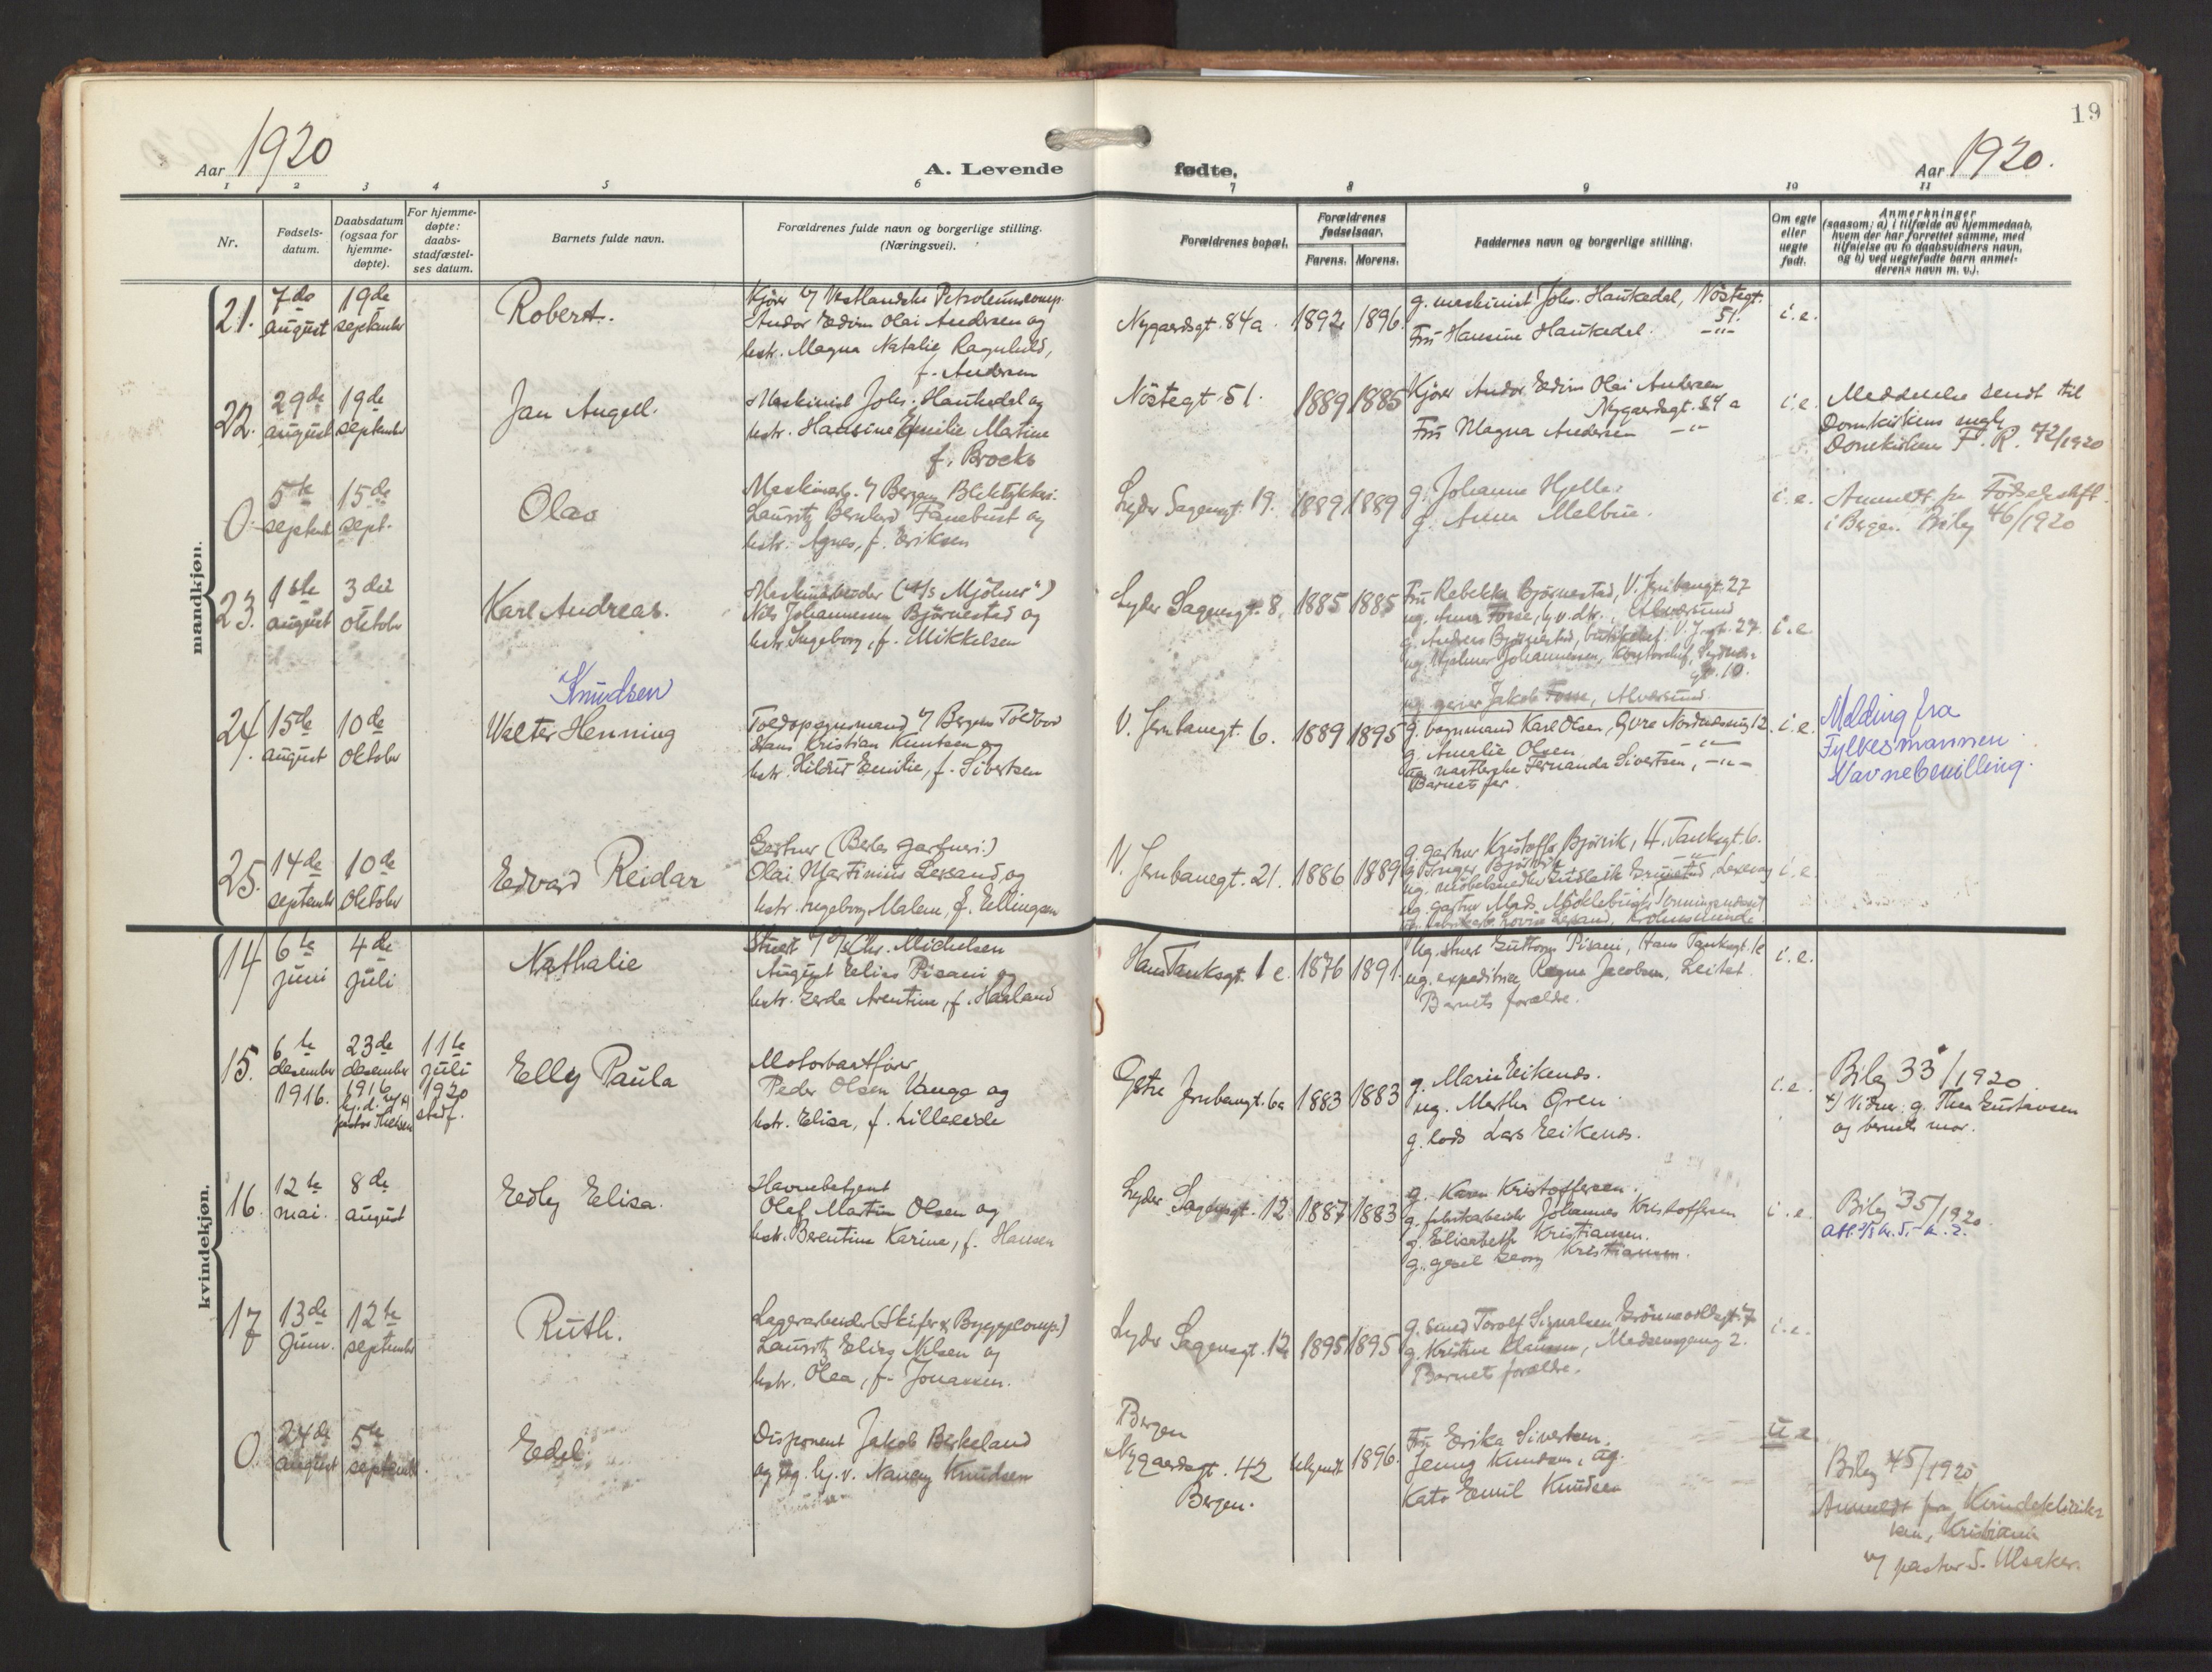 19
Aar 1920
A. Levende fødte,
Aar 1920.
1 2 3 4 5 6 7 8 9 10 11
Nr.
Fødsels-
datum.
Daabsdatum
(ogsaa for
hjemme-
døpte).
For hjemme-
døpte:
daabs-
stadfæstel-
ses datum.
Barnets fulde navn.
Forældrenes fulde navn og borgerlige stilling.
(Næringsvei).
Forældrenes bopæl.
Forældrenes
fødselsaar.
Farens. Morens.
Faddernes navn og borgerlige stilling.
Om egte
eller
uegte
født.
Anmerkninger
(saasom: a) i tilfælde av hjemmedaab,
hvem der har forrettet samme, med
tilføielse av to daabsvidners navn,
og b) ved uegtefødte barn anmel-
derens navn m. v.).
mandkjøn.
21.
7de
august
19de
september
Robert.
Kjører v/ Vestlandske Petroleumscomp.
Andor Edvin Olai Andersen og
hstr. Magna Natalie Ragnhild,
f. Andersen
Nygaardsgt. 84a.
1892 1896.
g. maskinist Johs. Haukedal, Nöstegt.
51.
Fru Hansine Haukedal. -"-
i.e.
22.
29de
august
19de
september
Jan Angell.
Maskinist Johs. Haukedal og
hstr. Hansine Emilie Martine
f. Brocks
Nöstegt. 51.
1889 1885
Kjører Andor Edvin Olai Andersen
Nygaardsgt. 84 a
Fru Magna Andersen -"-
i.e.
Meddelelse sendt til
Domkirkens
Domkirken F. R. 72/1920
0.
5te
septemb
15de
sept.
Olav
Maskinarb. v/ Bergens Bliktrykkeri
Lauritz Bernhard Fanebust og
hstr. Agnes, f. Eriksen
Lyder Sagensgt. 19.
1889 1889
g. Johanne Hjelle.
g. Anna Melbue.
i.e.
Anmeldt fra Fødselsstift.
i Bergen. Bilag 46/1920
23.
1ste
august
3die
oktober
Karl Andreas.
Maskinarbeider (A/s Mjölner")
Nils Johannesen Björnestad og
hstr. Ingeborg, f. Mikkelsen
Lyder Sagensgt. 8.
1885 1885
Fru Rebekka Bjørnestad, V. Jernbanegt. 27
ug. Anna Fosse, gv. dtr., Alversund
g. Anders Bjørnestad, V. J.gt. 27.
ug. Hjalmar Johannessen, Kontorchef, Sydnes-
gt. 10.
ug. Jakob Fosse, Alversund.
i.e.
24.
15de
august
10de
oktober
Knudsen
Walter Henning
Toldopsynsmand v/ Bergens Toldbod
Hans Kristian Knutsen og
hstr. Hildur Emilie, f. Sivertsen
V. Jernbanegt. 6.
1889 1895
g. vognmand Karl Olsen, Øvre Nordnæsvei 12.
g. Amalie Olsen -"-
ug. Fernanda Sivertsen, -"-
Barnets far.
i.e.
Melding fra
Fylkesmannen
Navnebevilling.
25.
14de
september
10de
oktober
Edvard Reidar
Gartner (Berles gartneri.)
Olai Martinius Lexand og
hstr. Ingeborg Malene, f. Ellingsen
V. Jernbanegt. 21.
1886 1889
g. gartner Kristoffer Björvik, H. Tanksgt. 6.
g. Inger Björvik -"-
ug. gartner Mads Möklebust,
i.e.
kvindekjøn.
14
6te
juni
4de
juli
Nathalie
Stuert v/ Chr. Michelsen
August Elias Pisani og
hstr. Gerda Arentine, f. Haaland
Hans Tanksgt. 1 e.
1876 1891.
ug. stuert Guttorm Pisani, Hans Tanksgt. 1e
ug. expeditrice Ragna Jacobsen, Leitet.
Barnets forældre.
i.e.
15.
6te
desember
1916.
23de
desember
1916
hj.d. v/ x)
pastor Nielsen
11te
juli
1920
stadf.
Elly Paula
Motorbaatfører
Peder Olsen Vange og
hstr. Elisa, f. Lilleeide
Østre Jernbanegt. 6a
1883 1883
g. Marie Eikenes.
ug. Martha Gren.
g. lods Lars Eikenes.
i.e.
Bilag 33/1920
x) Vidner: g. Thea Gustavsen
og barnets mor.
16.
12te
mai.
8de
august
Edly Elisa.
Havnebetjent
Olaf Martin Olsen og
hstr. Berentine Karine, f. Hansen
Lyder Sagensgt. 12
1887 1883
g. Karen Kristoffersen.
g. fabrikarbeider Johannes Kristoffersen
g. Elisabeth Kristiansen.
g. Georg Kristiansen.
i.e.
Bilag 35/1920
17
13de
juni.
12te
september
Ruth.
Lagerarbeider (Skifer & Byggecomp.)
Lauritz Elias Nilsen og
hstr. Olea, f. Jonassen.
Lyder Sagensgt. 12
1895 1895
g. smed Torolf Sigvaldsen Grönnevoldsgt. 7
g. Kristine Klausen, Madsensgang 2.
Barnets forældre.
i.e.
0.
24de
august
5te
september.
Edel.
Disponent Jakob Berkeland
og ug. hj.v. Nancy Knudsen
Bergen
Nygaardsgt. 42
Bergen.
ukjendt 1896.
Fru Erika Sivertsen.
Jenny Knudsen, ug.
Kato Emil Knudsen
u.e.
Bilag 45/1920
Anmeldt fra Kvindeklinik-
ken, Kristiania
v/ pastor S. Ulsaker.